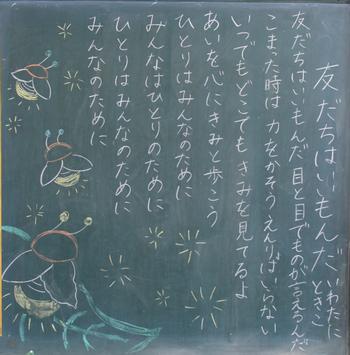 友だちはいいもんだ いわたに ときこ
友だちはいいもんだ 目と目でものが言えるんだ
こまった時は 力をかそう えんりょはいらない
いつでもどこでも きみを見てるよ
あいを心に きみと歩こう
ひとりはみんなのために
みんなはひとりのために
ひとりはみんなのために
みんなのために